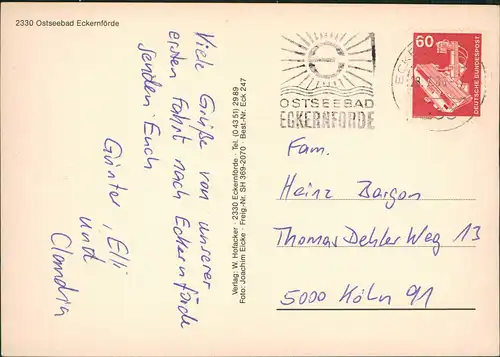 2330 Ostseebad Eckernförde
Viele Grüße von unserer
ersten Fahrt nach Eckernförde
senden Euch
Günter, Elli
und
Claudia
Verlag: W. Hofacker · 2330 Eckernförde · Tel. (0 43 51) 29 89
Foto: Joachim Eicke · Freig.-Nr. SH 369-2070 · Best.-Nr. Eck 247
OSTSEEBAD
ECKERNFÖRDE
60
DEUTSCHE BUNDESPOST
Fam.
Heinz Bargon
Thomas Dehler Weg 13
5000 Köln 91